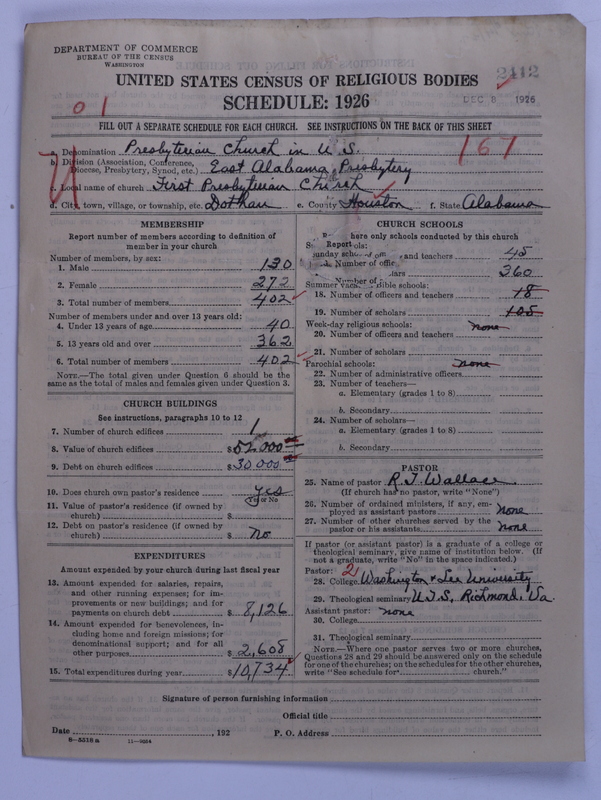 DEPARTMENT OF COMMERCE
BUREAU OF THE CENSUS
WASHINGTON
UNITED STATES CENSUS OF RELIGIOUS BODIES
2412
SCHEDULE: 1926
DEC 8 1926
0 1
FILL OUT A SEPARATE SCHEDULE FOR EACH CHURCH. SEE INSTRUCTIONS ON THE BACK OF THIS SHEET
167
a. Denomination Presbyterian Church in U.S.
b. Division (Association, Conference, Diocese, Presbytery, Synod, etc.) East Alabama Presbytery
c. Local name of church First Presbyterian Church
d. City, town, village, or township, etc. Dothan e. County Houston f. State Alabama
MEMBERSHIP
Report number of members according to definition of
member in your church
Number of members, by sex:
1. Male 130
2. Female 272
3. Total number of members 402
Number of members under and over 13 years old:
4. Under 13 years of age 40
5. 13 years old and over 362
6. Total number of members 402
NOTE.—The total given under Question 6 should be
same as the total of males and females given under Question 3.
CHURCH BUILDINGS
See instructions, paragraphs 10 to 12
7. Number of church edifices 1
8. Value of church edifices $52,000
9. Debt on church edifices $30,000
10. Does church own pastor's residence yes
Yes or No
11. Value of pastor's residence (if owned by
church) $
12. Debt on pastor's residence (if owned by
church) $ No
EXPENDITURES
Amount expended by your church during last fiscal year
13. Amount expended for salaries, repairs,
and other running expenses; for im-
provements or new buildings; and for
payments on church debt $8,126
14. Amount expended for benevolences, in-
cluding home and foreign missions; for
denominational support; and for all
other purposes $2,608
15. Total expenditures during year $10,734
CHURCH SCHOOLS
here only schools conducted by this church
Report
and teachers 45
Number of offic
lars 360
Number of
Summer vaca ible schools:
18. Number of officers and teachers 18
19. Number of scholars 105
Week-day religious schools: none
20. Number of officers and teachers
21. Number of scholars
Parochial schools: none
22. Number of administrative officers
23. Number of teachers—
a. Elementary (grades 1 to 8)
b. Secondary
24. Number of scholars—
a. Elementary (grades 1 to 8)
b. Secondary
PASTOR
25. Name of pastor R. J. Wallace
(If church has no pastor, write "None")
26. Number of ordained ministers, if any, em-
ployed as assistant pastors None
27. Number of other churches served by the
pastor or his assistants None
If pastor (or assistant pastor) is a graduate of a college or
theological seminary, give name of institution below. (If
not a graduate, write "No" in the space indicated.)
Pastor: 21
28. College Washington & Lee University
29. Theological seminary U.T.S. Richmond, Va.
Assistant pastor: none
30. College
31. Theological seminary
NOTE.—Where one pastor serves two or more churches,
Questions 28 and 29 should be answered only on the schedule
for one of the churches; on the schedules for the other churches,
write "See schedule for church."
Signature of person furnishing information
Official title
Date , 192 P. O. Address
8—5518a 11—9864